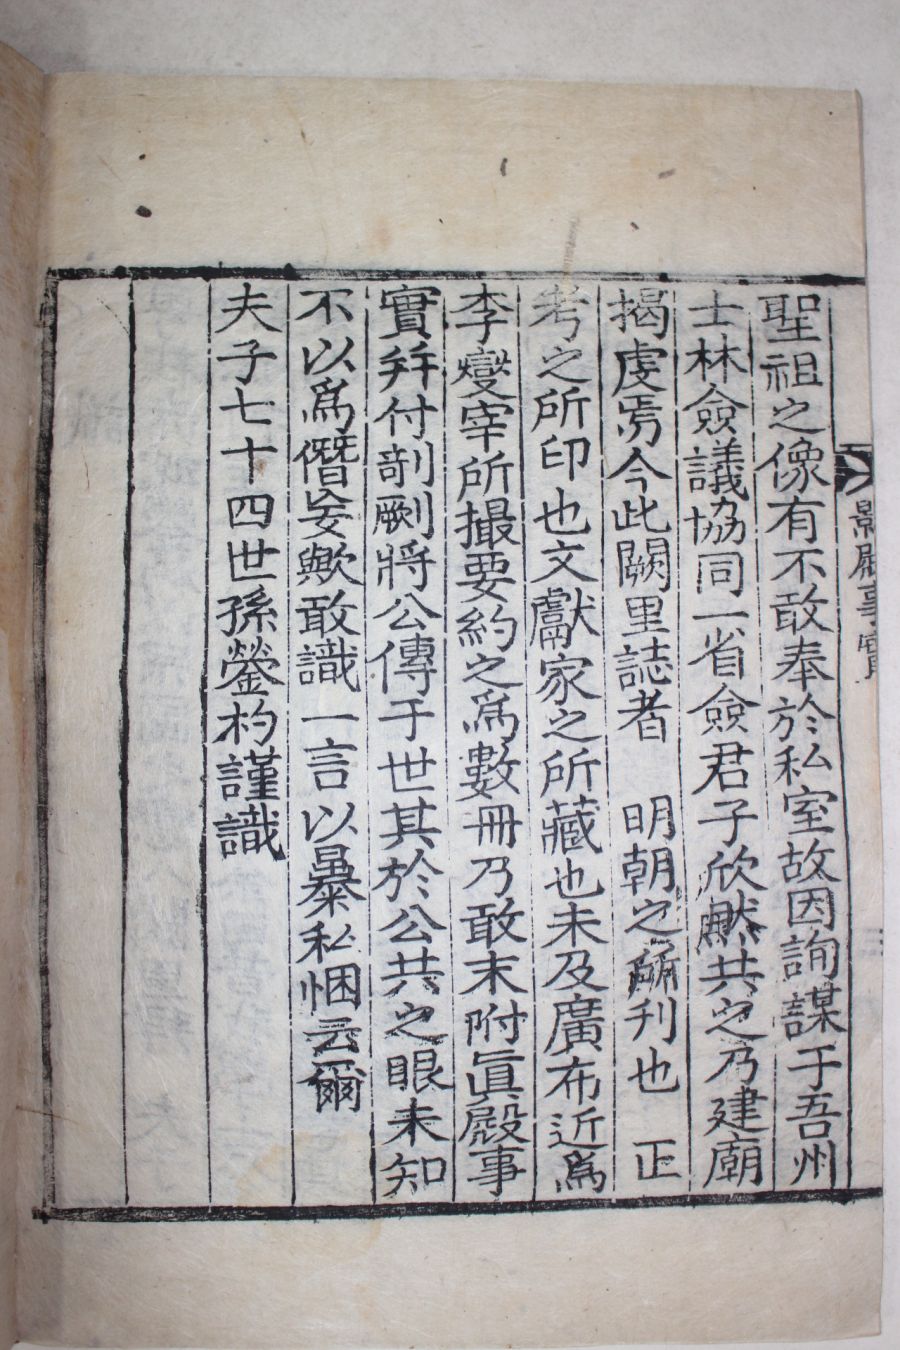 影殿事實
聖祖之像有不敢奉於私室故因詢謀于吾州
士林僉議協同一省僉君子欣然共之乃建廟
揭虔焉今此闕里誌者 明朝之所刋也 正
考之所印也文獻家之所藏也未及廣布近為
李燮宰所撮要約之為數冊乃敢末附眞殿事
實幷付剞劂將公傳于世其於公共之眼未知
不以為僭妄歟敢識一言以暴私悃云爾
夫子七十四世孫鎣杓謹識